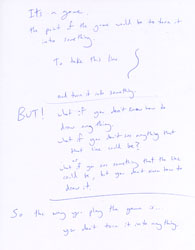 It's a game.
the point of the game would be to turn it
into something
To take this line
and turn it into something.
BUT! what if you don't even have to
draw anything.
what if you don't see anything that
that line will be?
or
what if you see something that the line
could be, but you don't even have to
draw it.
So the way you play the game is...
you don't turn it into anything.